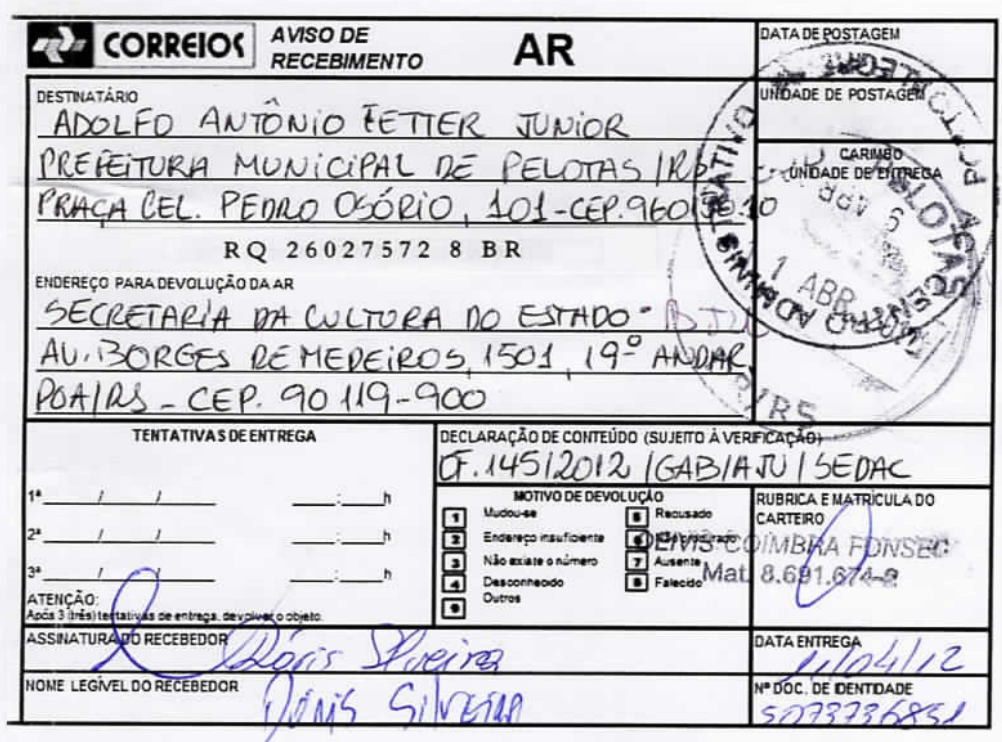 CORREIOS
AVISO DE
RECEBIMENTO
AR
DATA DE POSTAGEM
UNIDADE DE POSTAGEM
CARIMBO
UNIDADE DE ENTREGA
DESTINATÁRIO
ADOLFO ANTÔNIO FETTER JUNIOR
PREFEITURA MUNICIPAL DE PELOTAS/RS
PRAÇA CEL. PEDRO OSÓRIO, 101-CEP.
RQ 26027572 8 BR
ENDEREÇO PARA DEVOLUÇÃO DA AR
SECRETARIA DA CULTURA DO ESTADO -
AV. BORGES DE MEDEIROS, 1501, 19º ANDAR
POA/RS - CEP. 90 119-900
PELOTAS
CENTRO ADMINISTRATIVO
PORTO ALEGRE
1 ABR
/RS
TENTATIVAS DE ENTREGA
1ª / / : h
2ª / / : h
3ª / / : h
ATENÇÃO:
Após 3 (três) tentativas de entrega, devolver o objeto.
DECLARAÇÃO DE CONTEÚDO (SUJEITO À VERIFICAÇÃO)
OF. 145/2012 /GAB/AJU/SEDAC
MOTIVO DE DEVOLUÇÃO
1 Mudou-se
2 Endereço insuficiente
3 Não existe o número
4 Desconhecido
9 Outros
5 Recusado
6 Não procurado
7 Ausente
8 Falecido
RUBRICA E MATRÍCULA DO
CARTEIRO
DEIVIS COIMBRA FONSEC
Mat. 8.691.674-2
ASSINATURA DO RECEBEDOR
Dóris Silveira
DATA ENTREGA
11/04/12
NOME LEGÍVEL DO RECEBEDOR
DÓRIS SILVEIRA
Nº DOC. DE IDENTIDADE
5073736851